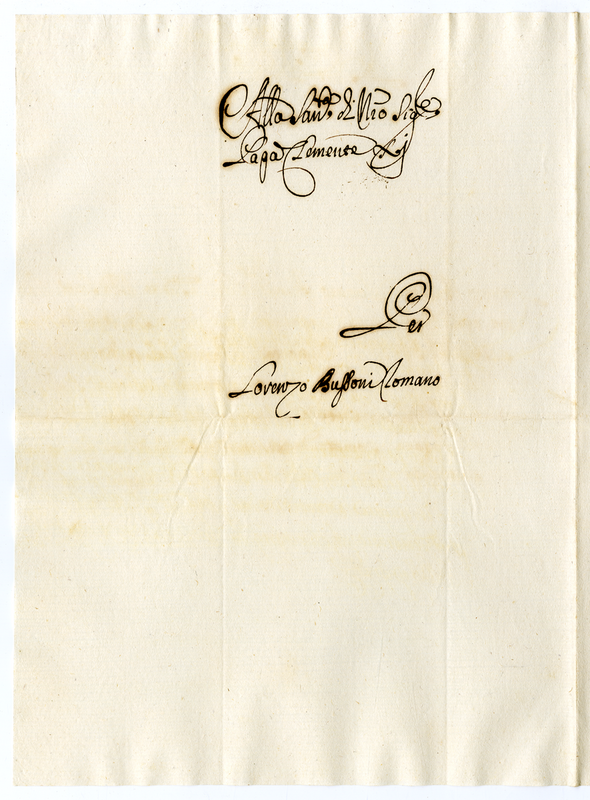 Alla San.tà di N̄ro Sig.re
Papa Clemente XI
Per
Lorenzo Bussoni Romano